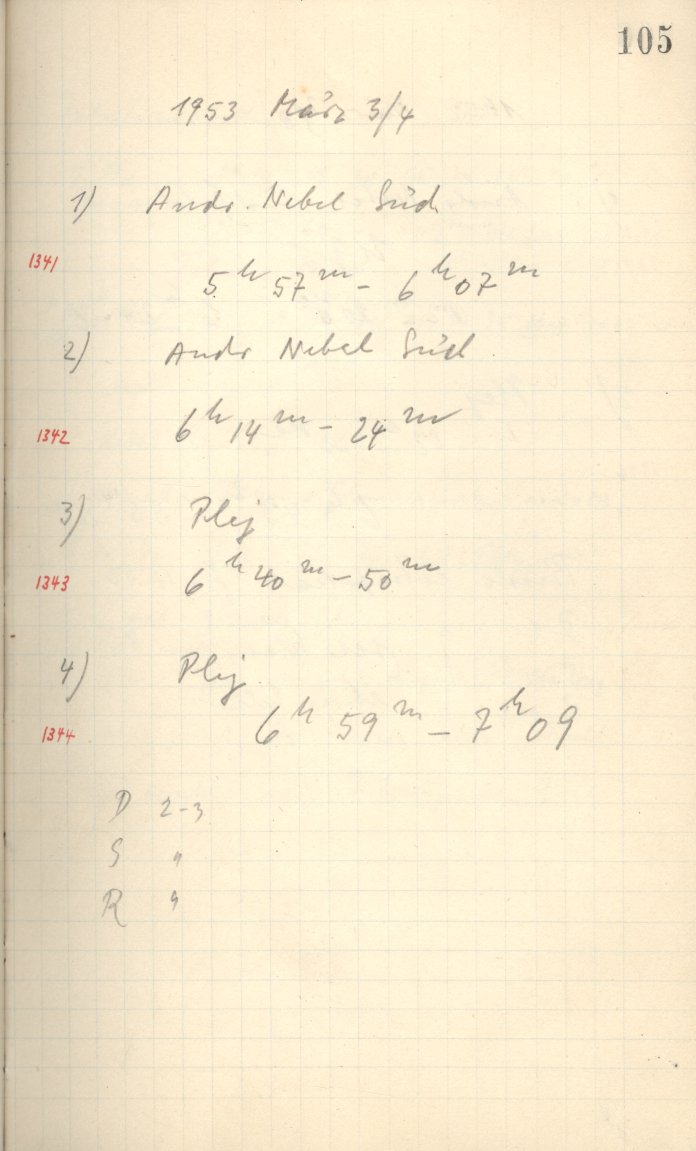 105
1953 März 3/4
1) Andr. Nebel Süd
1341
5ʰ 57ᵐ - 6ʰ 07ᵐ
2) Andr Nebel Süd
1342
6ʰ 14ᵐ - 24ᵐ
3) Plej
1343
6ʰ 40ᵐ - 50ᵐ
4) Plej.
1344
6ʰ 59ᵐ - 7ʰ 09
D 2-3
S "
R "